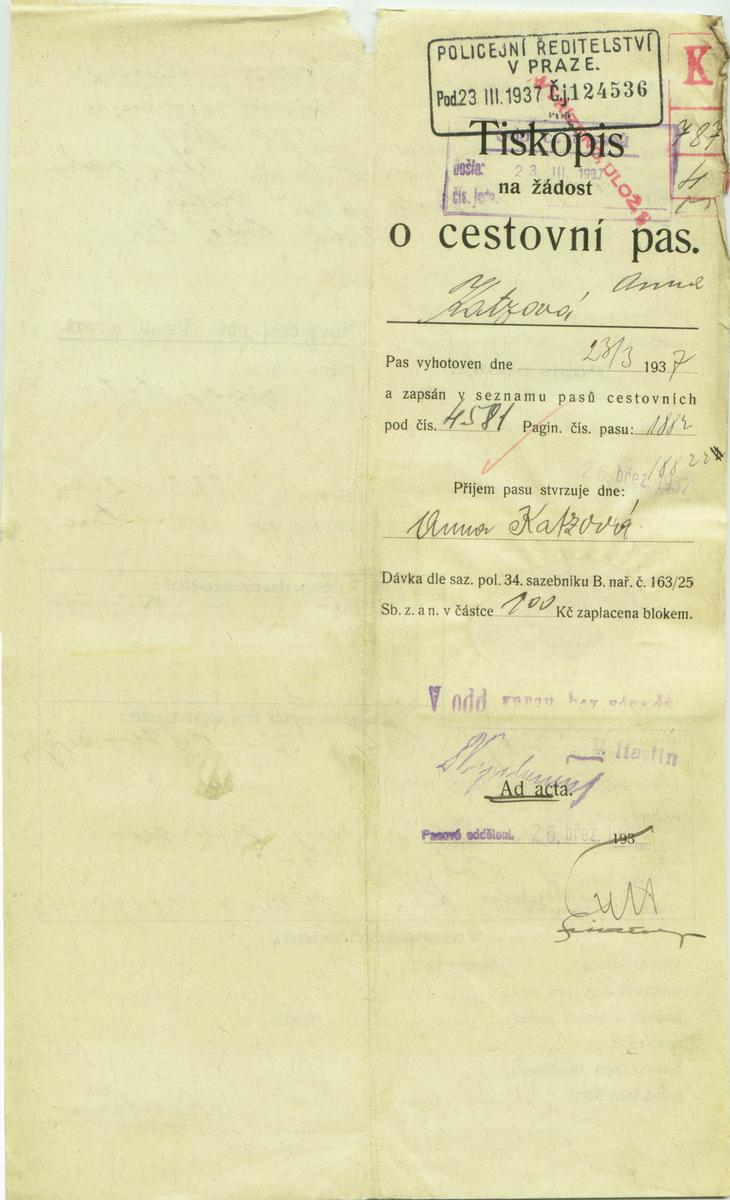 POLICEJNÍ ŘEDITELSTVÍ
V PRAZE.
Pod. 23 III. 1937 Čj. 124536
K
787
4
Tiskopis
došla: 23 III. 1937
na žádost
o cestovní pas.
Katzová Anna
Pas vyhotoven dne 23/3 1937
a zapsán v seznamu pasů cestovních
pod čís. 4581 Pagin. čís. pasu: 1882
26. břez. 1937
Příjem pasu stvrzuje dne:
Anna Katzová
Dávka dle saz. pol. 34. sazebníku B. nař. č. 163/25
Sb. z. a n. v částce 100 Kč zaplacena blokem.
V odd
Ad acta.
Pasové oddělení. 26. břez. 193